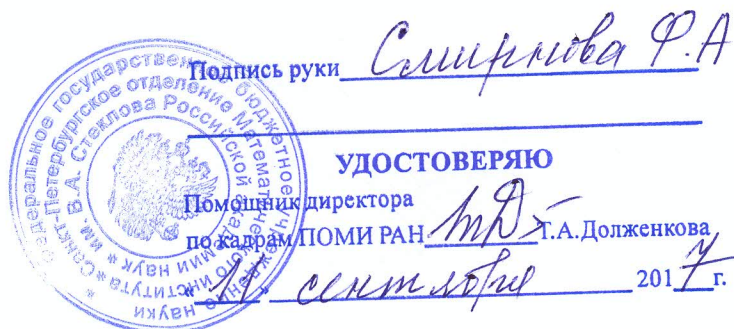 Подпись руки Смирнова Ф.А
УДОСТОВЕРЯЮ
Помощник директора
по кадрам ПОМИ РАН Т.А.Долженкова
« 11 » сентября 2017 г.
Федеральное государственное бюджетное учреждение науки
Санкт-Петербургское отделение Математического института
им. В.А. Стеклова Российской академии наук